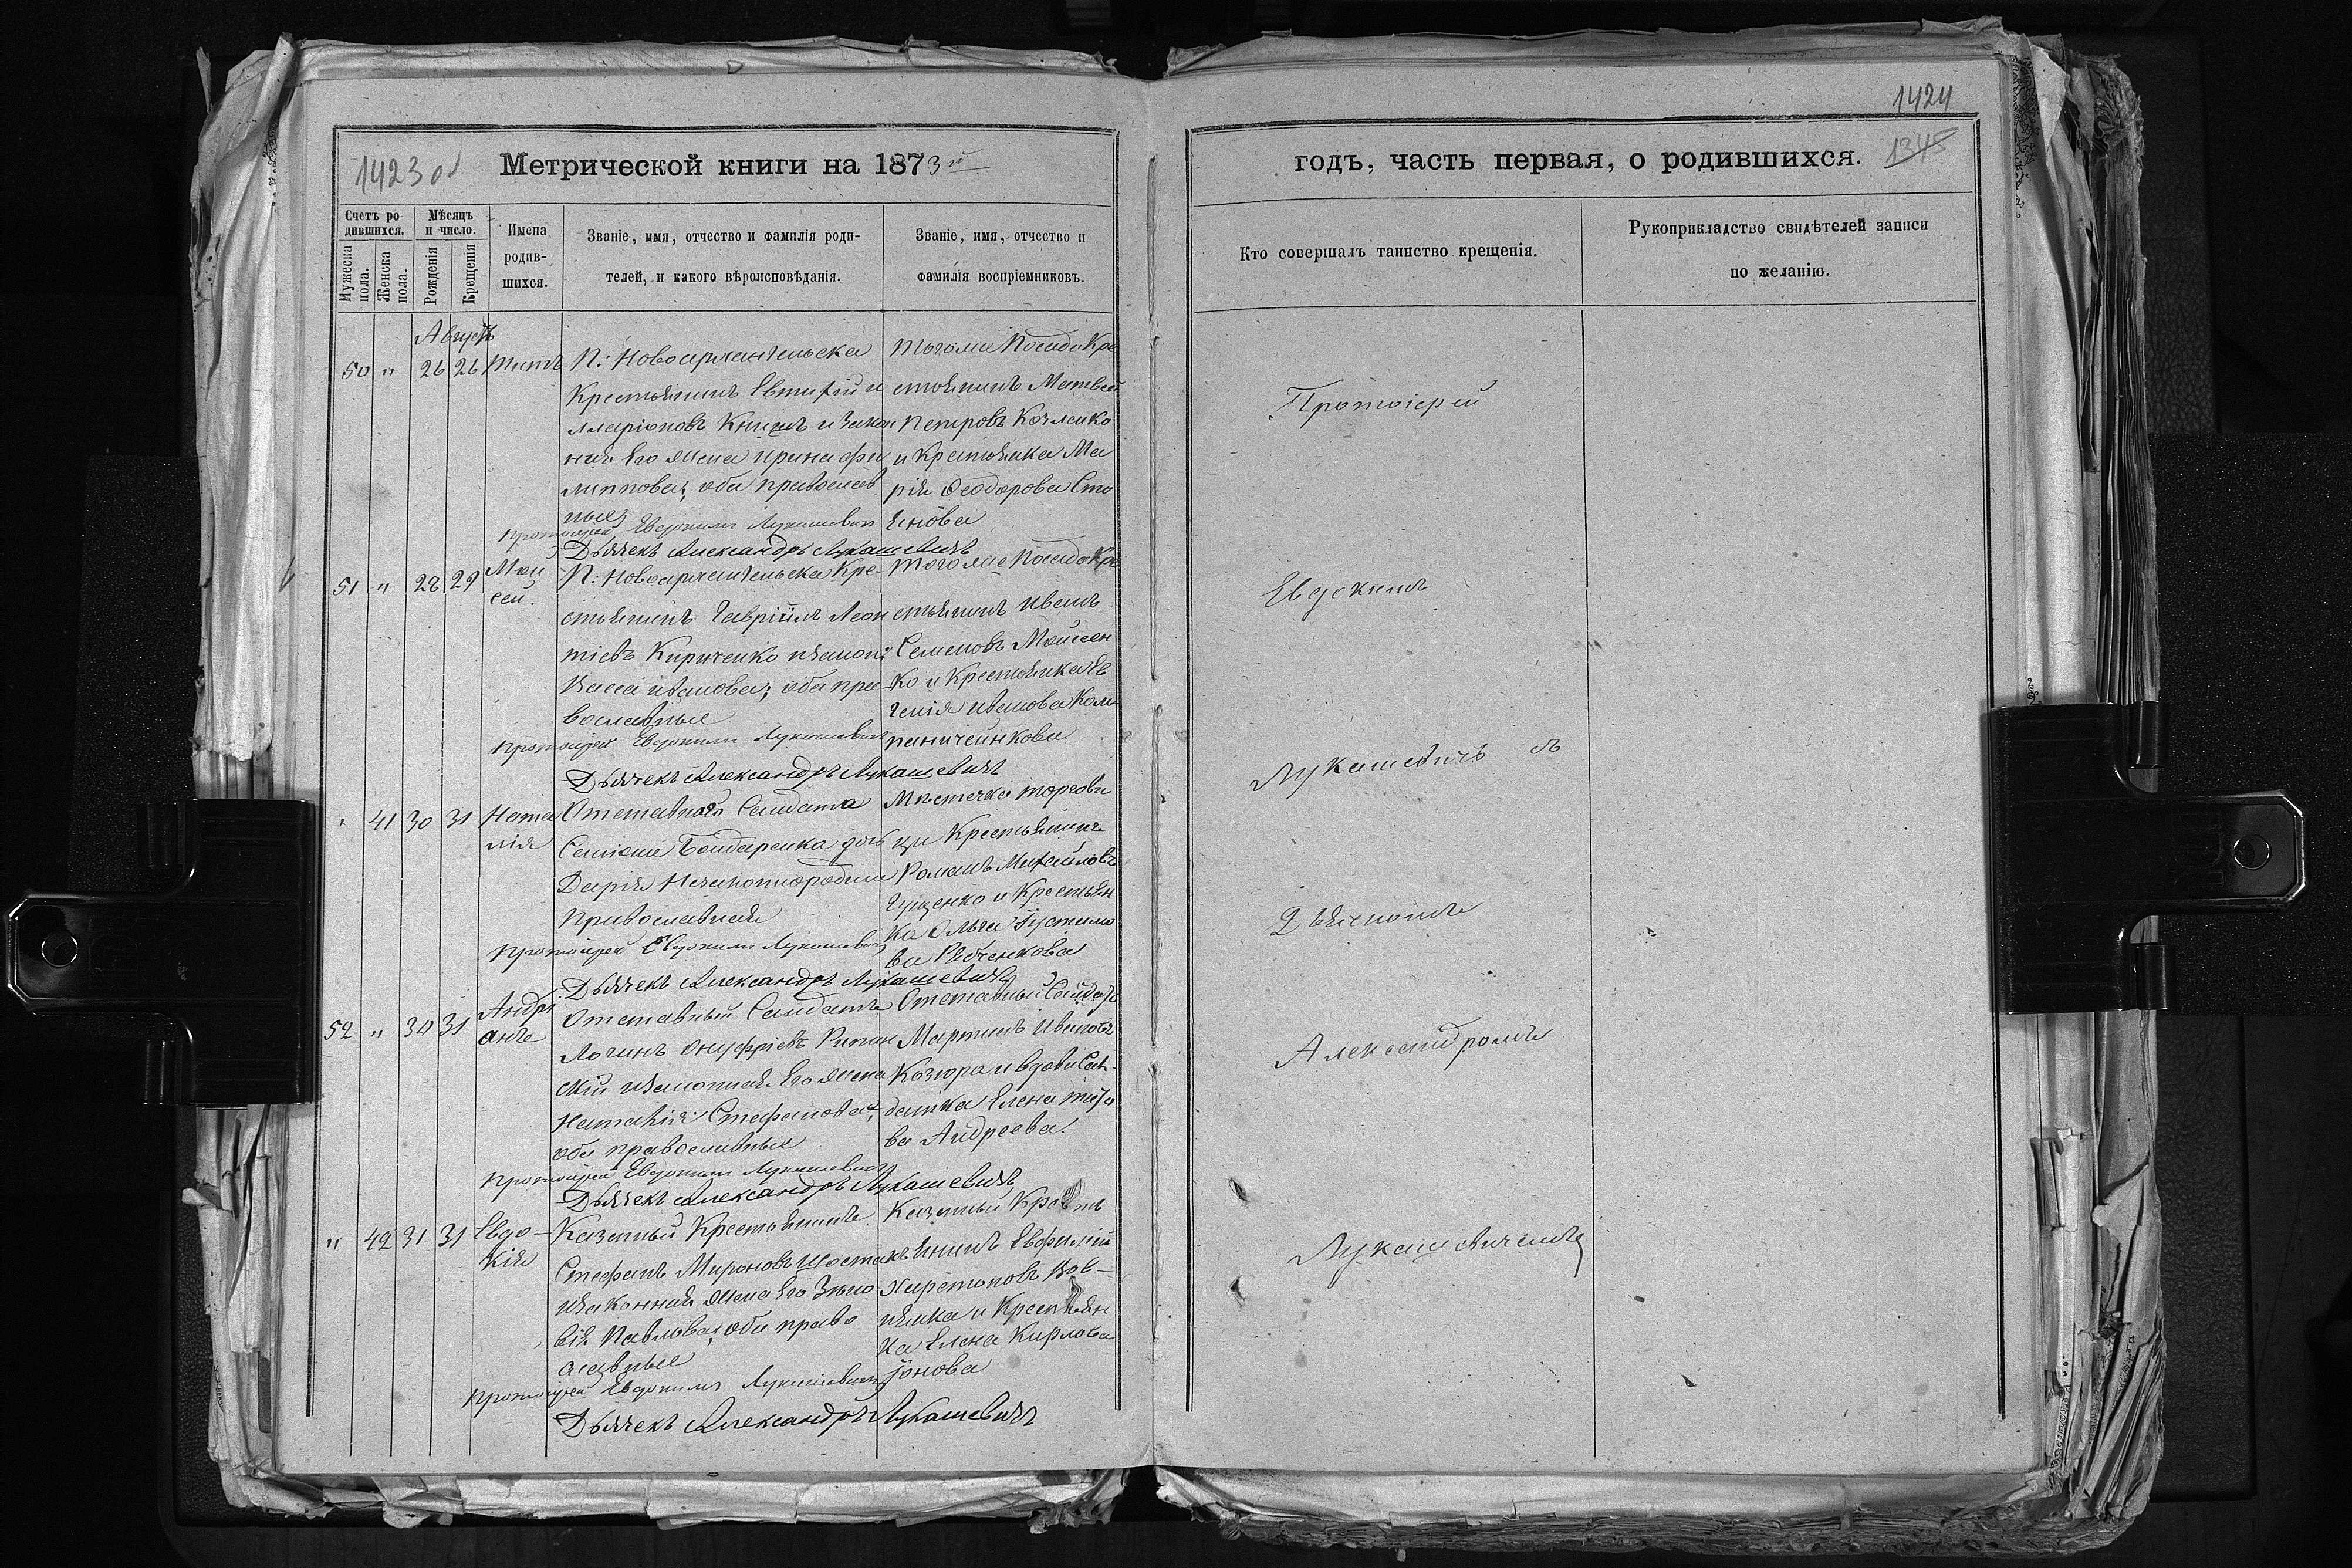 1424
1423 об
Метрической книги на 1873й
годъ, часть первая, о родившихся.
1345
Счетъ ро-
дившихся.
Мужеска пола.
Женска пола.
Мѣсяцъ
и число.
Рожденія
Крещенія
Имена
родив-
шихся.
Званіе, имя, отчество и фамилія роди-
телей, и какого вѣроисповѣданія.
Званіе, имя, отчество и
фамилія воспріемниковъ.
Кто совершалъ таинство крещенія.
Рукоприкладство свидѣтелей записи
по желанію.
Августъ
50 " 26 26 Титъ
П: Новоархангельска
Крестьянинъ Евтихій И
лларіоновъ Книшъ и закон
ная его жена Ирина Фи
липпова; оба православ
ные
тогоже Посада Кре
стьянинъ Матвей
Петровъ Козленко
и Крестьянка Ма
рія Феодорова Сто
янова
Протоіерей Евдокимъ Лукашевичъ
Дьячекъ Александръ Лукашевичъ
51 " 28 29 Мои
сей.
П: Новоархангельска Кре-
стьянинъ Гавріилъ Леон
тіевъ Кириченко и закон:
Васса Иванова; оба пра
вославные
тогоже Посада Кре
стьянинъ Иванъ
Семеновъ Мойсеен
ко и Крестьянка Ев
генія Иванова Ком
панийченкова
Протоіерей Евдокимъ Лукашевичъ
Дьячекъ Александръ Лукашевичъ
" 41 30 31 Ната
лія
Отставнаго Солдата
Бондаренка дочь
Дарія Незаконнородная
Православная
Мѣстечка Торгови
цы Крестьянинъ
Романъ Михайловъ
Гущенко и Крестьян
ка Ольга Іустимо
ва
Протоіерей Евдокимъ Лукашевичъ
Дьячекъ Александръ Лукашевичъ
52 " 30 31 Андрі
анъ
Отставный Солдатъ
Логинъ Онуфріевъ Рипин
скій и законная его жена
Наталія Стефанова;
оба православные
Отставный Солдатъ
Мартинъ Ивановъ
Козюра и вдова Сол-
датка Елена Тито
ва Андреева.
Протоіерей Евдокимъ Лукашевичъ
Дьячекъ Александръ Лукашевичъ
" 42 31 31 Евдо-
кія
Казенный Крестьянинъ
Стефанъ Мироновъ Шостакъ
и законная жена его Зѣно
вія Павлова; оба право
славные
Казенный Кресть
янинъ Евфимій
Харитоновъ Вов-
нянка и Крестьян
ка Елена Кирлова
Іонова
Протоіерей Евдокимъ Лукашевичъ
Дьячекъ Александръ Лукашевичъ
Протоіерей
Евдокимъ
Лукашевичъ съ
Дьячкомъ
Александромъ
Лукашевичемъ